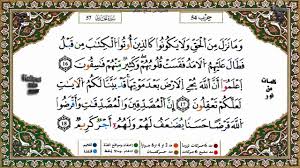 57
حزب 54
وَمَا نَزَلَ مِنَ ٱلْحَقِّ وَلَا يَكُونُوا۟ كَٱلَّذِينَ أُوتُوا۟ ٱلْكِتَـٰبَ مِن قَبْلُ
فَطَالَ عَلَيْهِمُ ٱلْأَمَدُ فَقَسَتْ قُلُوبُهُمْ وَكَثِيرٌ مِّنْهُمْ فَـٰسِقُونَ ١٦
ٱعْلَمُوٓا۟ أَنَّ ٱللَّهَ يُحْىِ ٱلْأَرْضَ بَعْدَ مَوْتِهَا قَدْ بَيَّنَّا لَكُمُ ٱلْـَٔايَـٰتِ
لَعَلَّكُمْ تَعْقِلُونَ ١٧ إِنَّ ٱلْمُصَّدِّقِينَ وَٱلْمُصَّدِّقَـٰتِ وَأَقْرَضُوا۟
ٱللَّهَ قَرْضًا حَسَنًا يُضَـٰعَفُ لَهُمْ وَلَهُمْ أَجْرٌ كَرِيمٌ ١٨
كلمات
من
نور